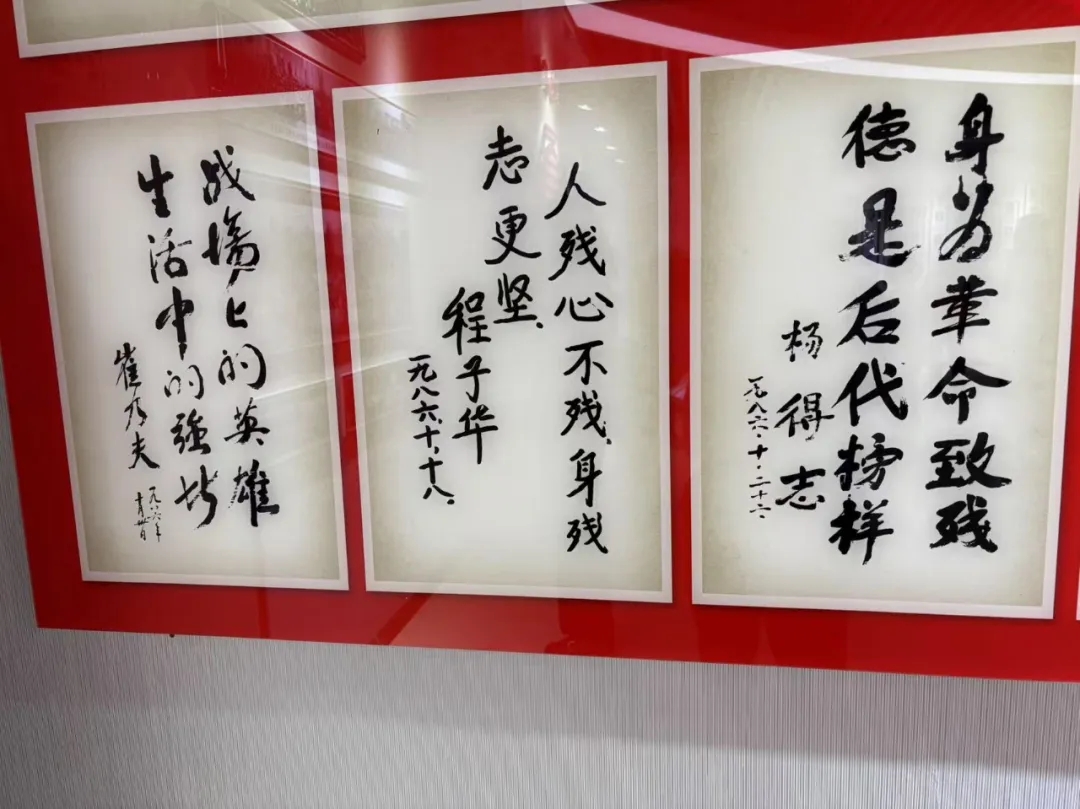 身为革命致残
德是后代榜样
杨得志
一九八六·十·
人残心不残、身残
志更坚、
程子华
一九八六、十、十八、
战場上的英雄
生活中的強者
崔乃夫
一九八六年
十月廿日